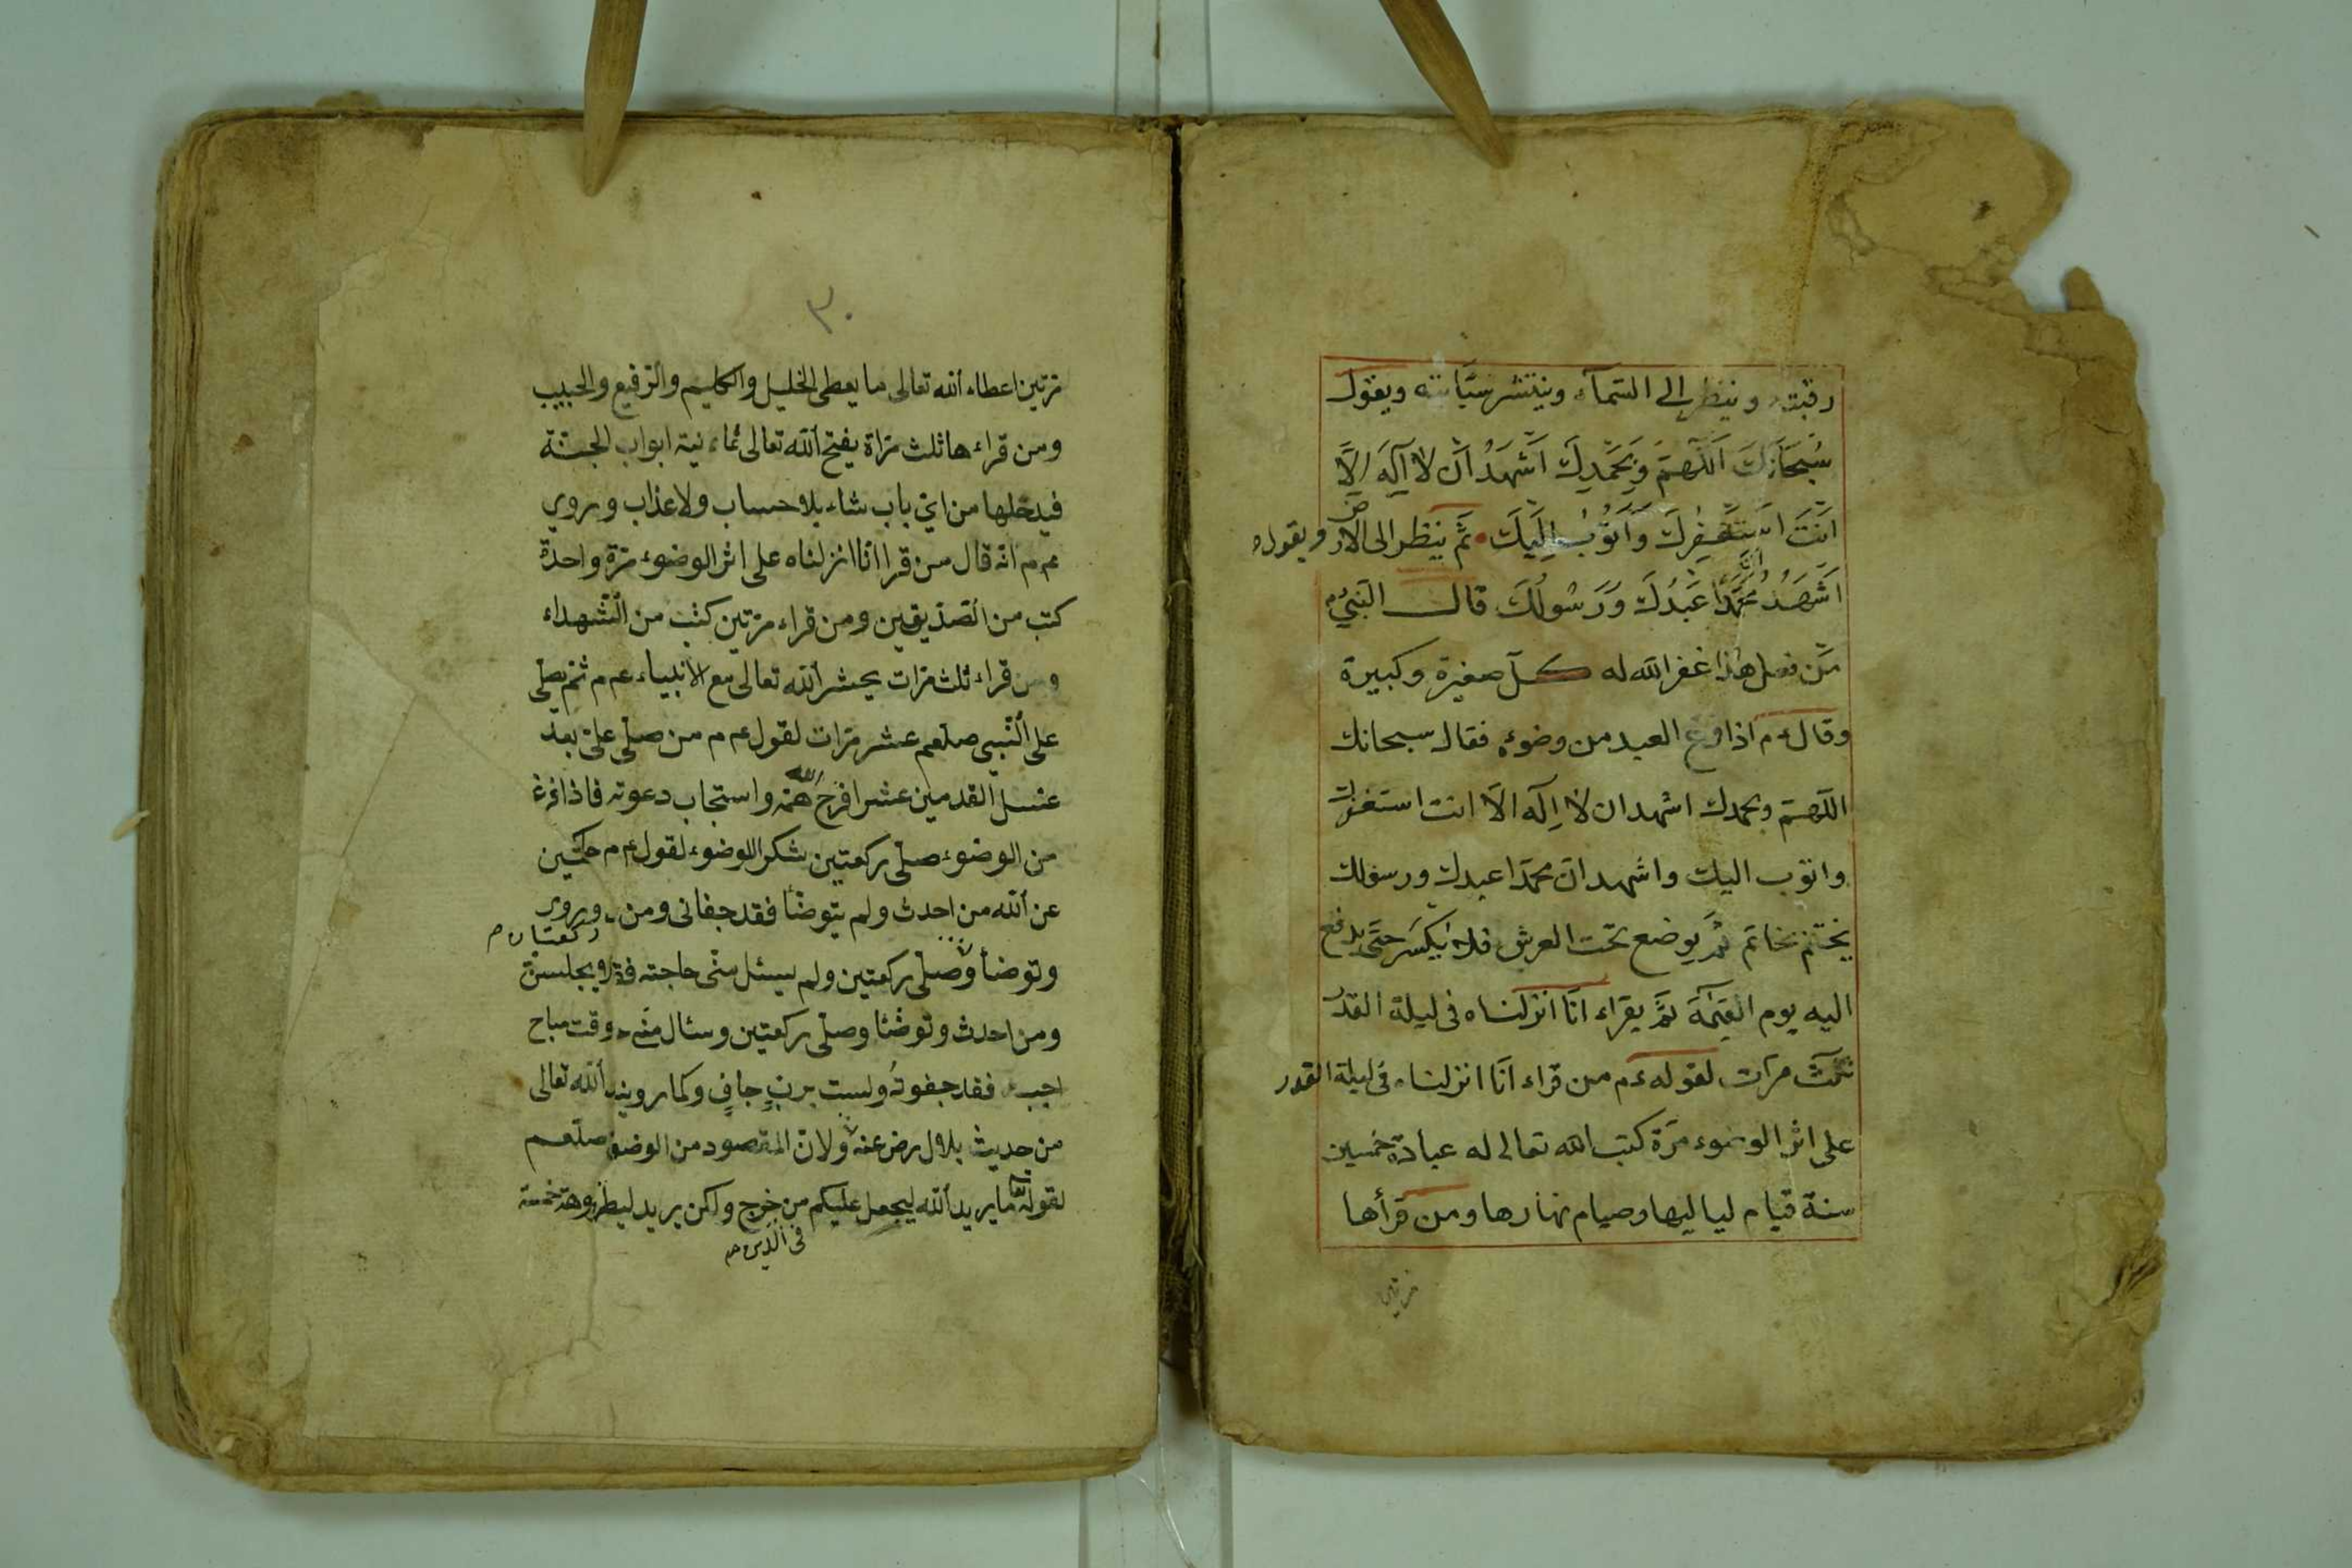 رقبته وينظر الى السَّمَآء وينتشر سبَّابته ويقول
سُبْحَانَكَ اَللّٰهُمَّ وَبِحَمْدِكَ اَشْهَدُ اَنْ لَا اِلٰهَ اِلَّا
اَنْتَ اَسْتَغْفِرُكَ وَاَتُوبُ اِلَيْكَ ثَمَّ ينظر الى الارض ويقول
اَشْهَدُ اَنَّ مُحَمَّدًا عَبْدُكَ وَرَسُولُكَ قال النَبِىُّ م
مَن فعل هذا غفر الله له كلّ صغيرة وكبيرة
وقال ءم اذا فرغ العبد من وضوءه فقال سبحانك
اللّهمّ وبحمدك اشهد ان لا اِلٰه الّا انت استغفرك
واتوب اليك واشهد انّ محمّدا عبدك ورسولك
يختم بخاتم ثمّ يوضع تحت العرش فلا يُكْسَر حتّى يدفع
اليه يوم القيٰمة ثمَّ يقراء انّا انزلناه فى ليلة القدر
ثلث مرّات لقوله ءم من قراء انّا انزلناه فى ليلة القدر
على اثر الوضوء مرّة كتب الله تعالى له عبادة خمسين
سنة قيام لياليها وصيام نهارها ومن قرأها
مرتين
٣٠
مرّتين اعطاه الله تعالى ما يعطى الخليل والكليم والرفيع والحبيب
ومن قراءها ثلث مرّاة يفتح الله تعالى ثمانية ابواب الجنّة
فيدخلها من اىّ باب شاء بلا حساب ولا عذاب وروي
عم م انّه قال من قرا انّا انزلناه على اثر الوضوء مرّة واحدة
كتب من الصّدّيقين ومن قراء مرّتين كتب من الشّهداء
ومن قراء ثلث مرّات يحشر الله تعالى مع الانبياء عم م ثم يصلّى
على النّبىّ صلعم عشر مرّات لقول عم م من صلّى علىّ بعد
غسل القدمين عشرا فرّج الله همّه واستجاب دعوته فاذا فرغ
من الوضوء صلّى ركعتين شكرا للوضوء لقول عم م
عن الله من احدث ولم يتوضّأ فقد جفانى ومن وروى
ركعتان م
وتوضأ وصلّى ركعتين ولم يسئل منّى حاجته
ومن احدث وتوضّئا وصلّى ركعتين وسئال منّى وقت مباح
اجبه فقد جفوتُه ولست بربٍّ جافٍ وكما روينا الله تعالى
من حديث بلال رض عنه ولانّ المقصود من الوضوء صلعم
لقوله تعا ما يريد الله ليجعل عليكم من حرج ولكن يريد ليطهّر
فى الدّين م